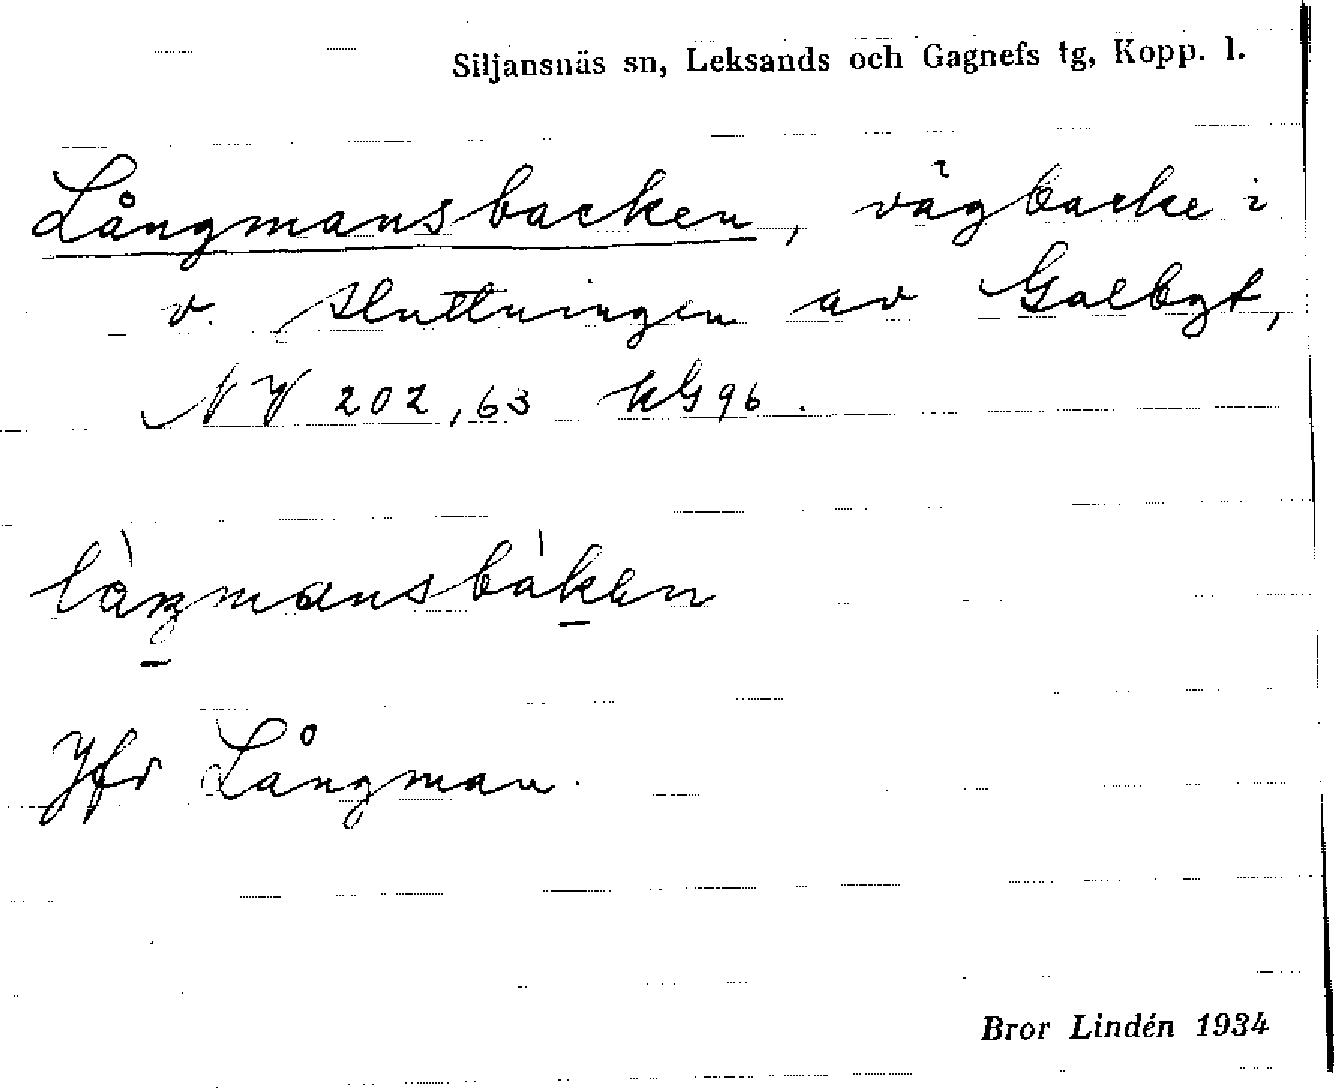 Siljansnäs sn, Leksands och Gagnefs tg, Kopp. l.
Långmansbacken, vägbacke i
v. sluttningen av
NV 202,63 KG 96.
Jfr Långman.
Bror Lindén 1934